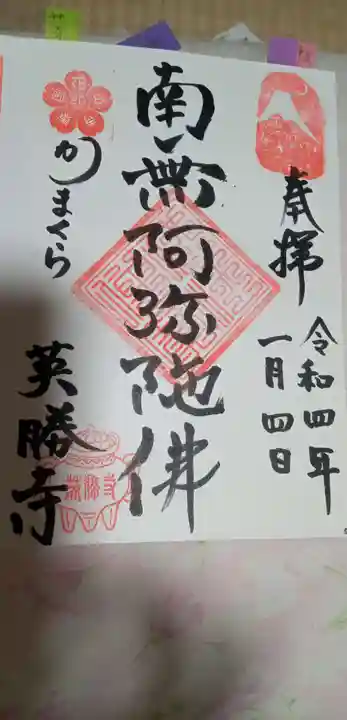 奉拝
令和四年
一月四日
南無阿弥陀佛
かまくら
英勝寺
英勝寺